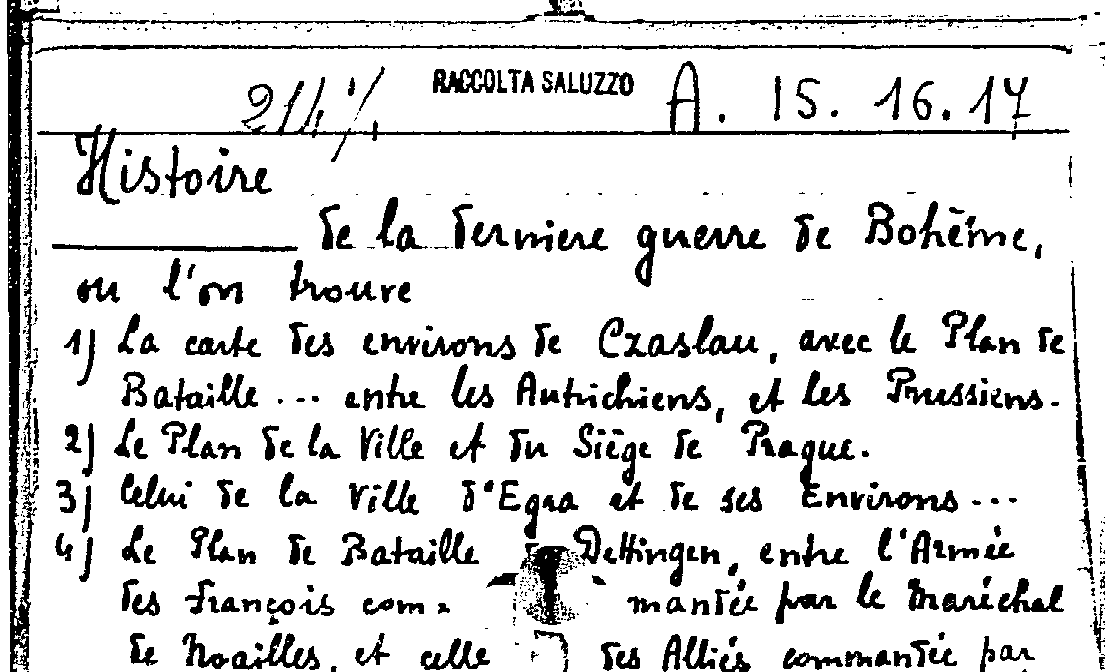 214 RACCOLTA SALUZZO A. 15. 16. 17
Histoire
de la derniere guerre de Bohême,
ou l'on trouve
1) La carte des environs de Czaslau, avec le Plan de
Bataille ... entre les Autrichiens, et les Prussiens.
2) Le Plan de la Ville et du Siège de Prague.
3) Celui de la Ville d'Egra et de ses Environs ...
4) Le Plan de Bataille Dettingen, entre l'Armée
des François com= mandée par le Maréchal
de Noailles, et celle des Alliés commandée par